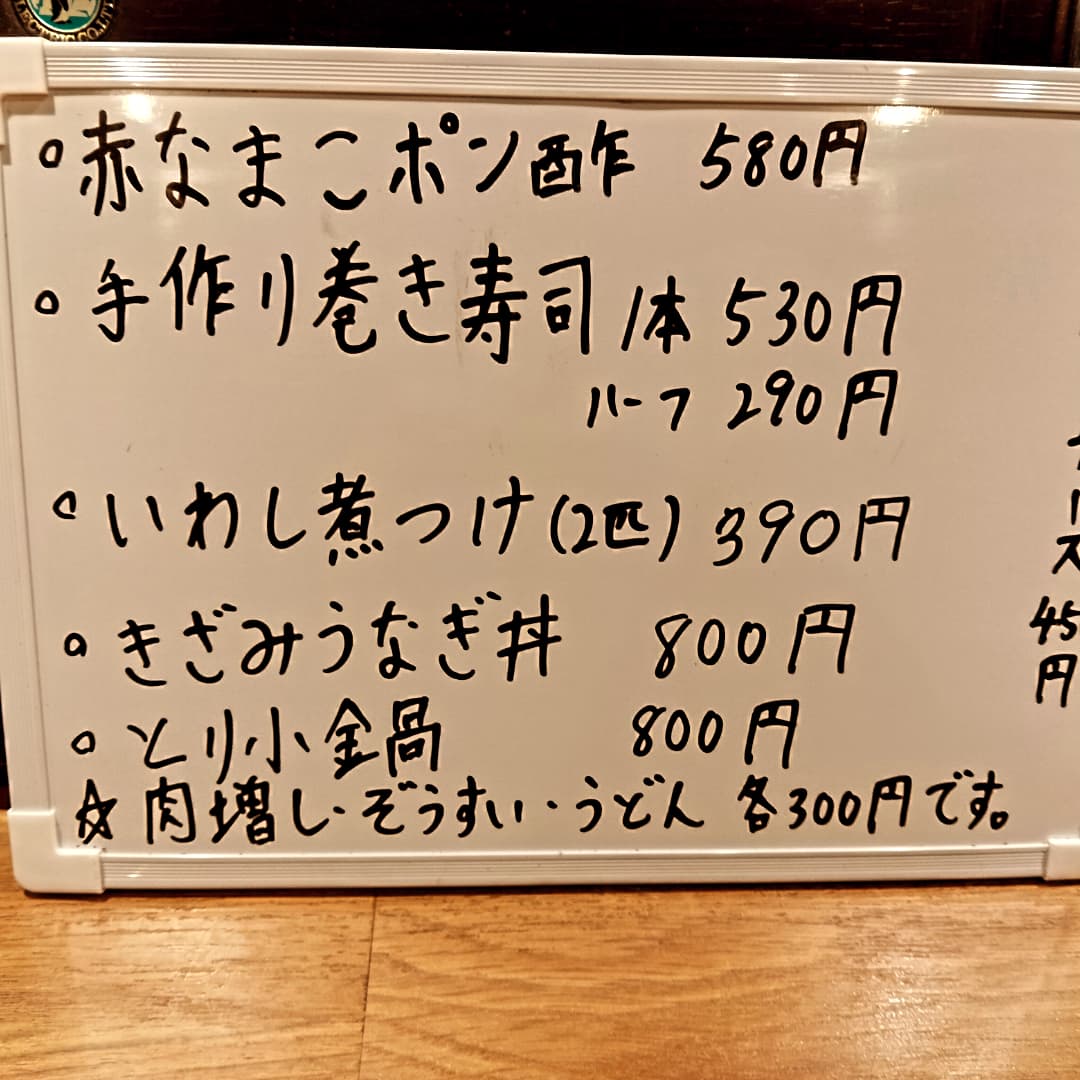 ELECTRIC CO.,LTD
◦赤なまこポン酢 580円
◦手作り巻き寿司 1本 530円
ハーフ 290円
◦いわし煮つけ(2匹) 390円
◦きざみうなぎ丼 800円
◦とり小鍋 800円
☆肉増し・ぞうすい・うどん 各300円です。
ース
45
円